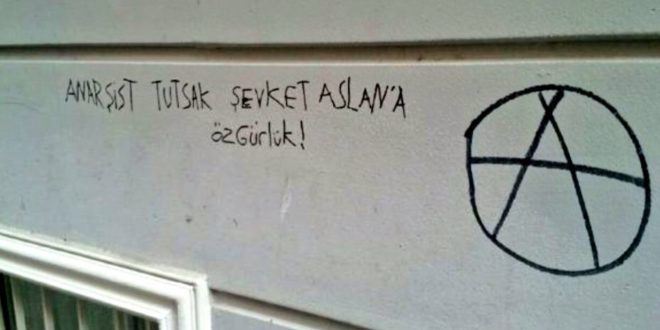 ANARŞİST TUTSAK ŞEVKET ASLAN'A
özGürlük!